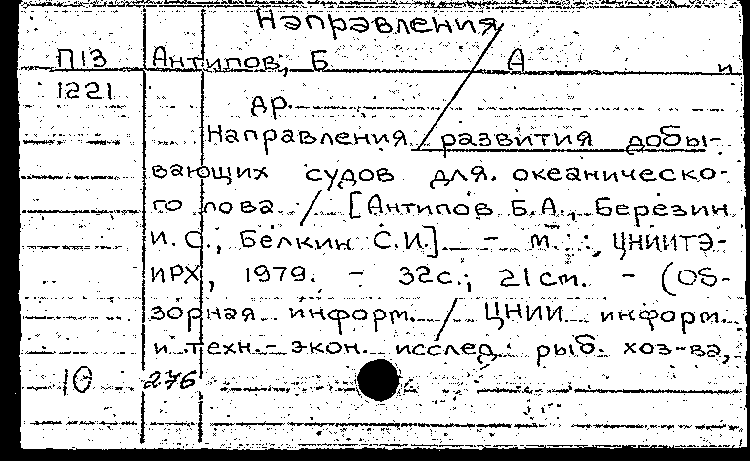 Направления
П13 Антипов, Б. А и
1221 др.
Направления / развития добы-
вающих судов для океаническо-
го лова / [Антипов Б.А., Березин
И.С., Белкин С.И.]. - М.: ЦНИИТЭ-
ИРХ, 1979. - 32с.; 21см. - (Об-
зорная информ. / ЦНИИ информ.
и техн.-экон. исслед. рыб. хоз-ва,
10 276